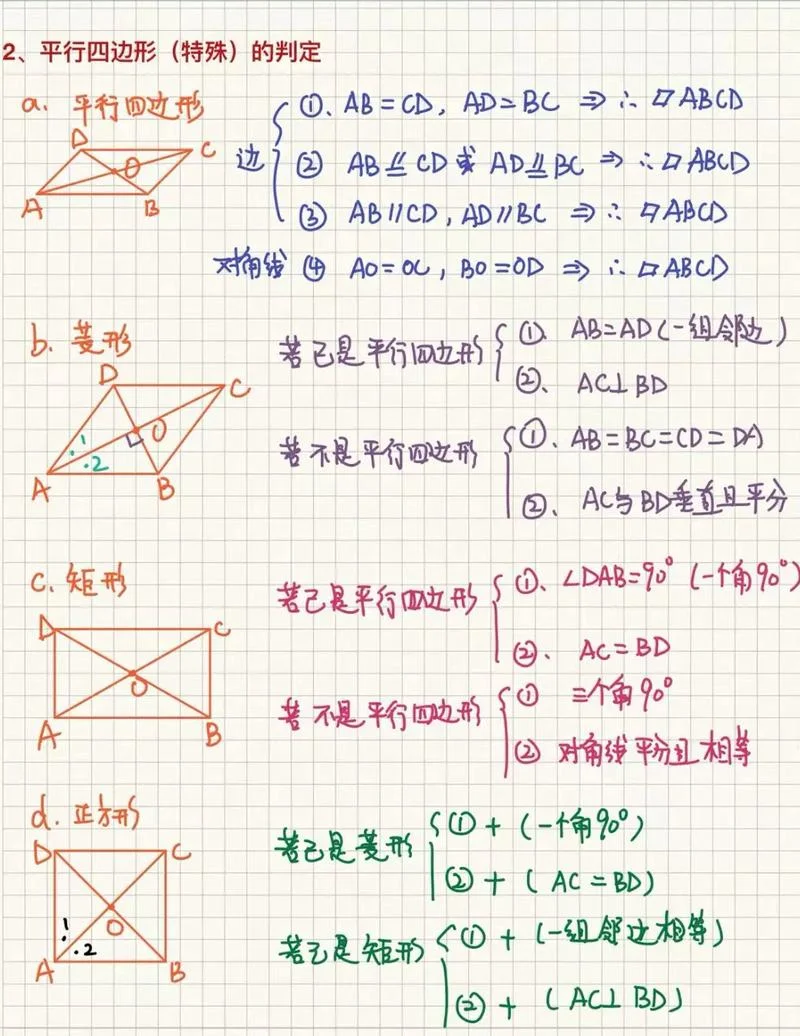 2、平行四边形（特殊）的判定
a. 平行四边形
D C O A B
边
①、AB=CD，AD=BC ⇒ ∴ ▱ABCD
② AB⫽CD 或 AD⫽BC ⇒ ∴ ▱ABCD
③ AB∥CD，AD∥BC ⇒ ∴ ▱ABCD
对角线 ④ AO=OC，BO=OD ⇒ ∴ ▱ABCD
b. 菱形
D C O A B 1 2
若已是平行四边形
①、AB=AD（一组邻边）
②、AC⊥BD
若不是平行四边形
①、AB=BC=CD=DA
②、AC与BD垂直且平分
c. 矩形
D C O A B
若已是平行四边形
①、∠DAB=90°（一个角90°）
②、AC=BD
若不是平行四边形
① 三个角90°
② 对角线平分且相等
d. 正方形
D C O A B 1 2
若已是菱形
①+（一个角90°）
②+（AC=BD）
若已是矩形
①+（一组邻边相等）
②+（AC⊥BD）